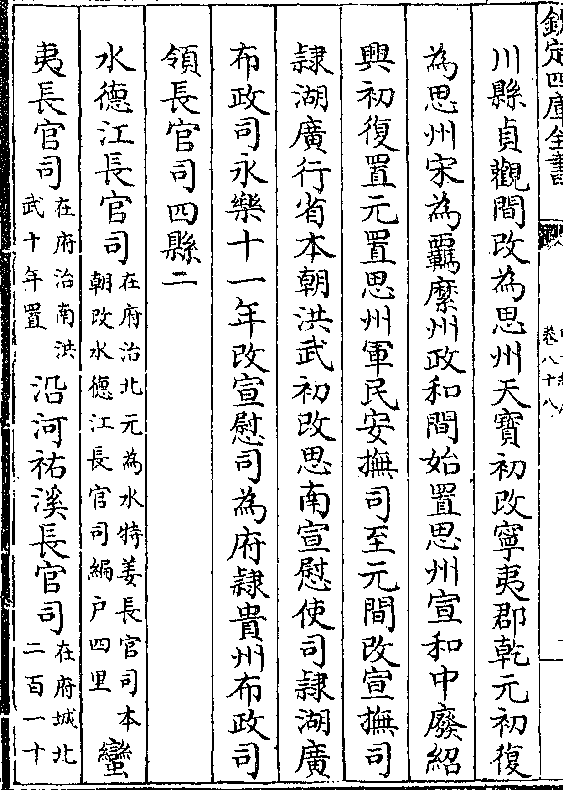 欽定四庫全書
卷八十八
川縣貞觀間改為思州天寶初改寧夷郡乾元初復
為思州宋為羈縻州政和間始置思州宣和中廢紹
興初復置元置思州軍民安撫司至元間改宣撫司
隸湖廣行省本朝洪武初改思南宣慰使司隸湖廣
布政司永樂十一年改宣慰司為府隸貴州布政司
領長官司四縣二
水德江長官司在府治北元為水特姜長官司本朝改水德江長官司編户四里蠻
夷長官司在府治南洪武十年置沿河祐溪長官司在府城北二百一十